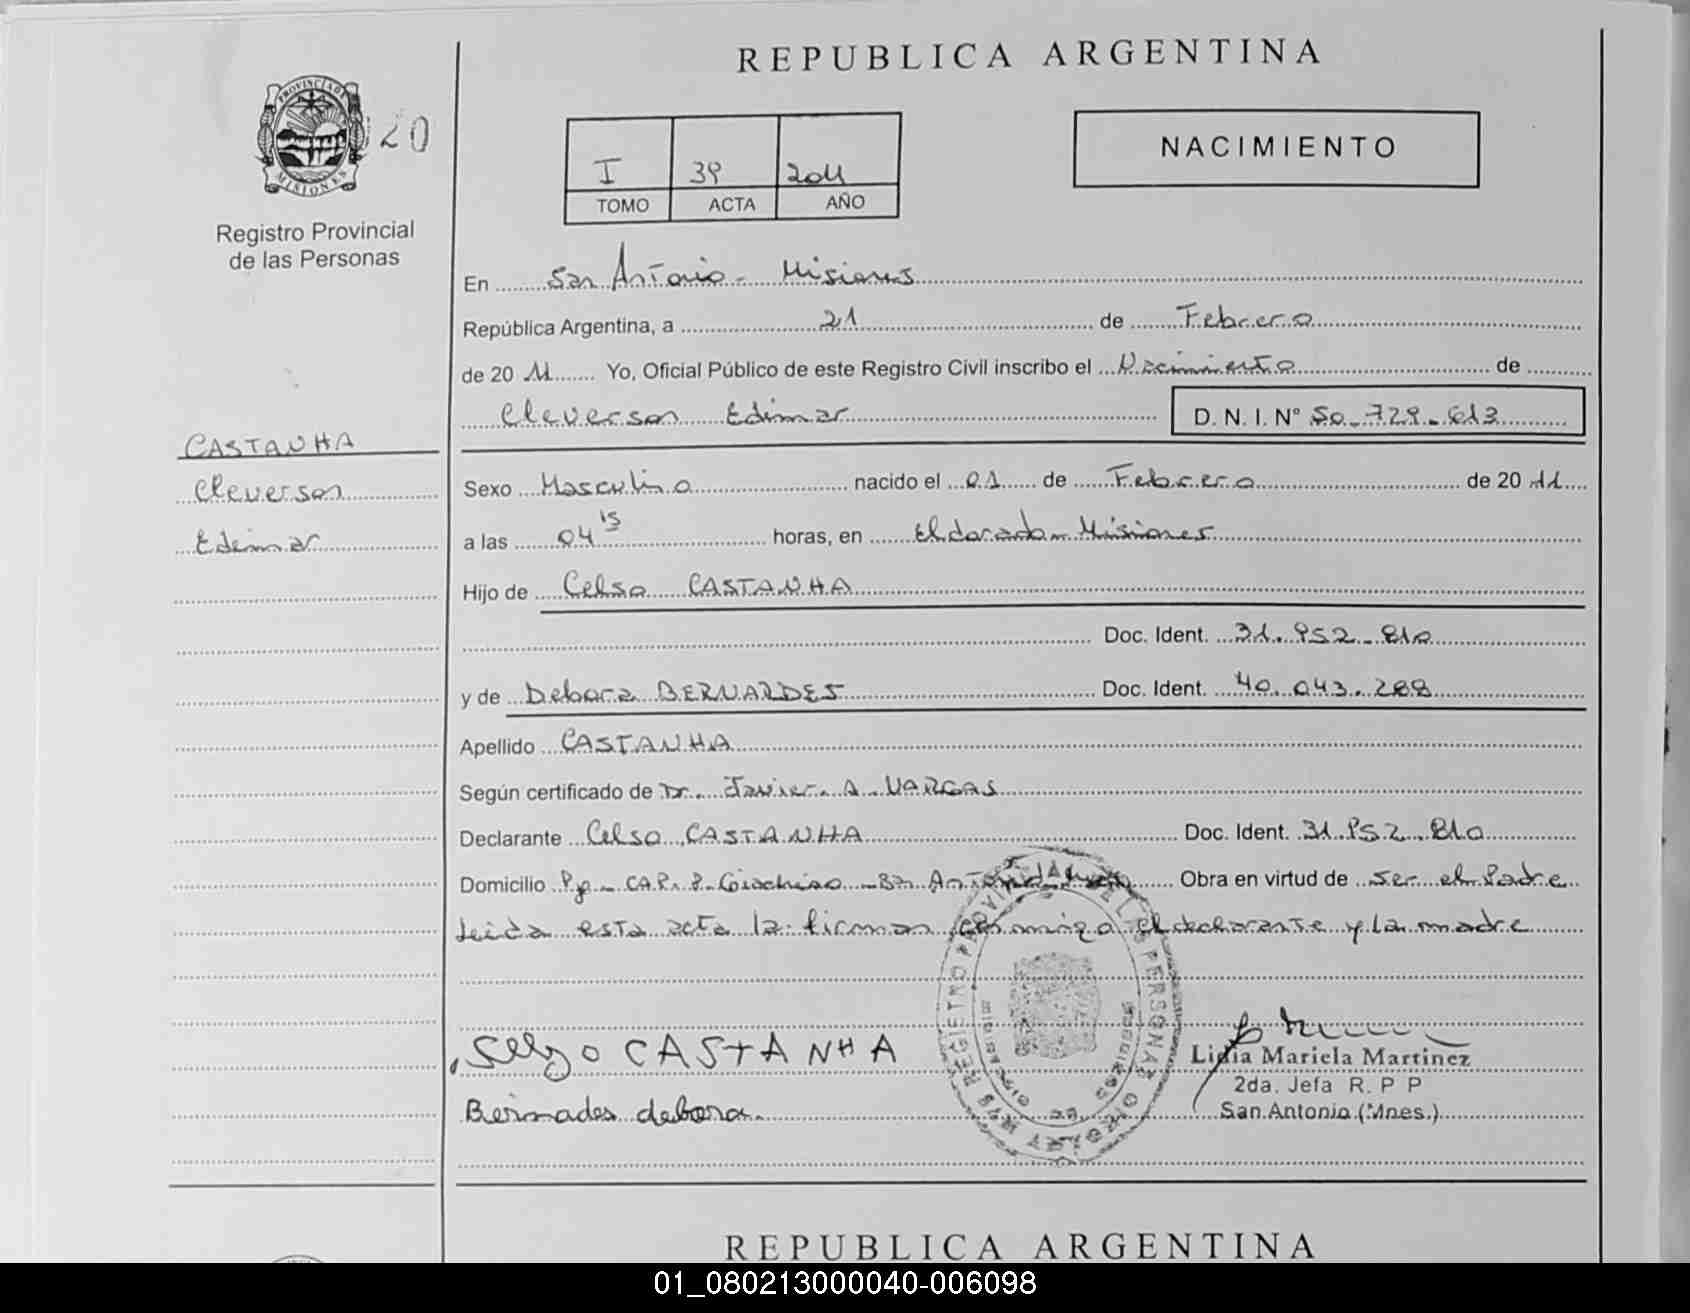 REPUBLICA ARGENTINA
PROVINCIA DE MISIONES
20
Registro Provincial
de las Personas
I 39 2011
TOMO ACTA AÑO
NACIMIENTO
En San Antonio - Misiones
República Argentina, a 21 de Febrero
de 20 11 Yo, Oficial Público de este Registro Civil inscribo el Nacimiento de
Cleverson Edimar D. N. I. N° 50.729.613
CASTANHA
Cleverson
Edimar
Sexo Masculino nacido el 01 de Febrero de 20 11
a las 04 15 horas, en Eldorado - Misiones
Hijo de Celso CASTANHA
Doc. Ident. 31.952.810
y de Debora BERNARDES Doc. Ident. 40.043.288
Apellido CASTANHA
Según certificado de Dr. Javier A. VARGAS
Declarante Celso CASTANHA Doc. Ident. 31.952.810
Domicilio Obra en virtud de ser el Padre
Leida esta acta la firman conmigo el declarante y la madre
REGISTRO PROVINCIAL DE LAS PERSONAS
Selzo CASTANHA
Bernades debora
Lidia Mariela Martinez
2da. Jefa R. P P
San Antonio (Mnes.)
REPUBLICA ARGENTINA
01_080213000040-006098